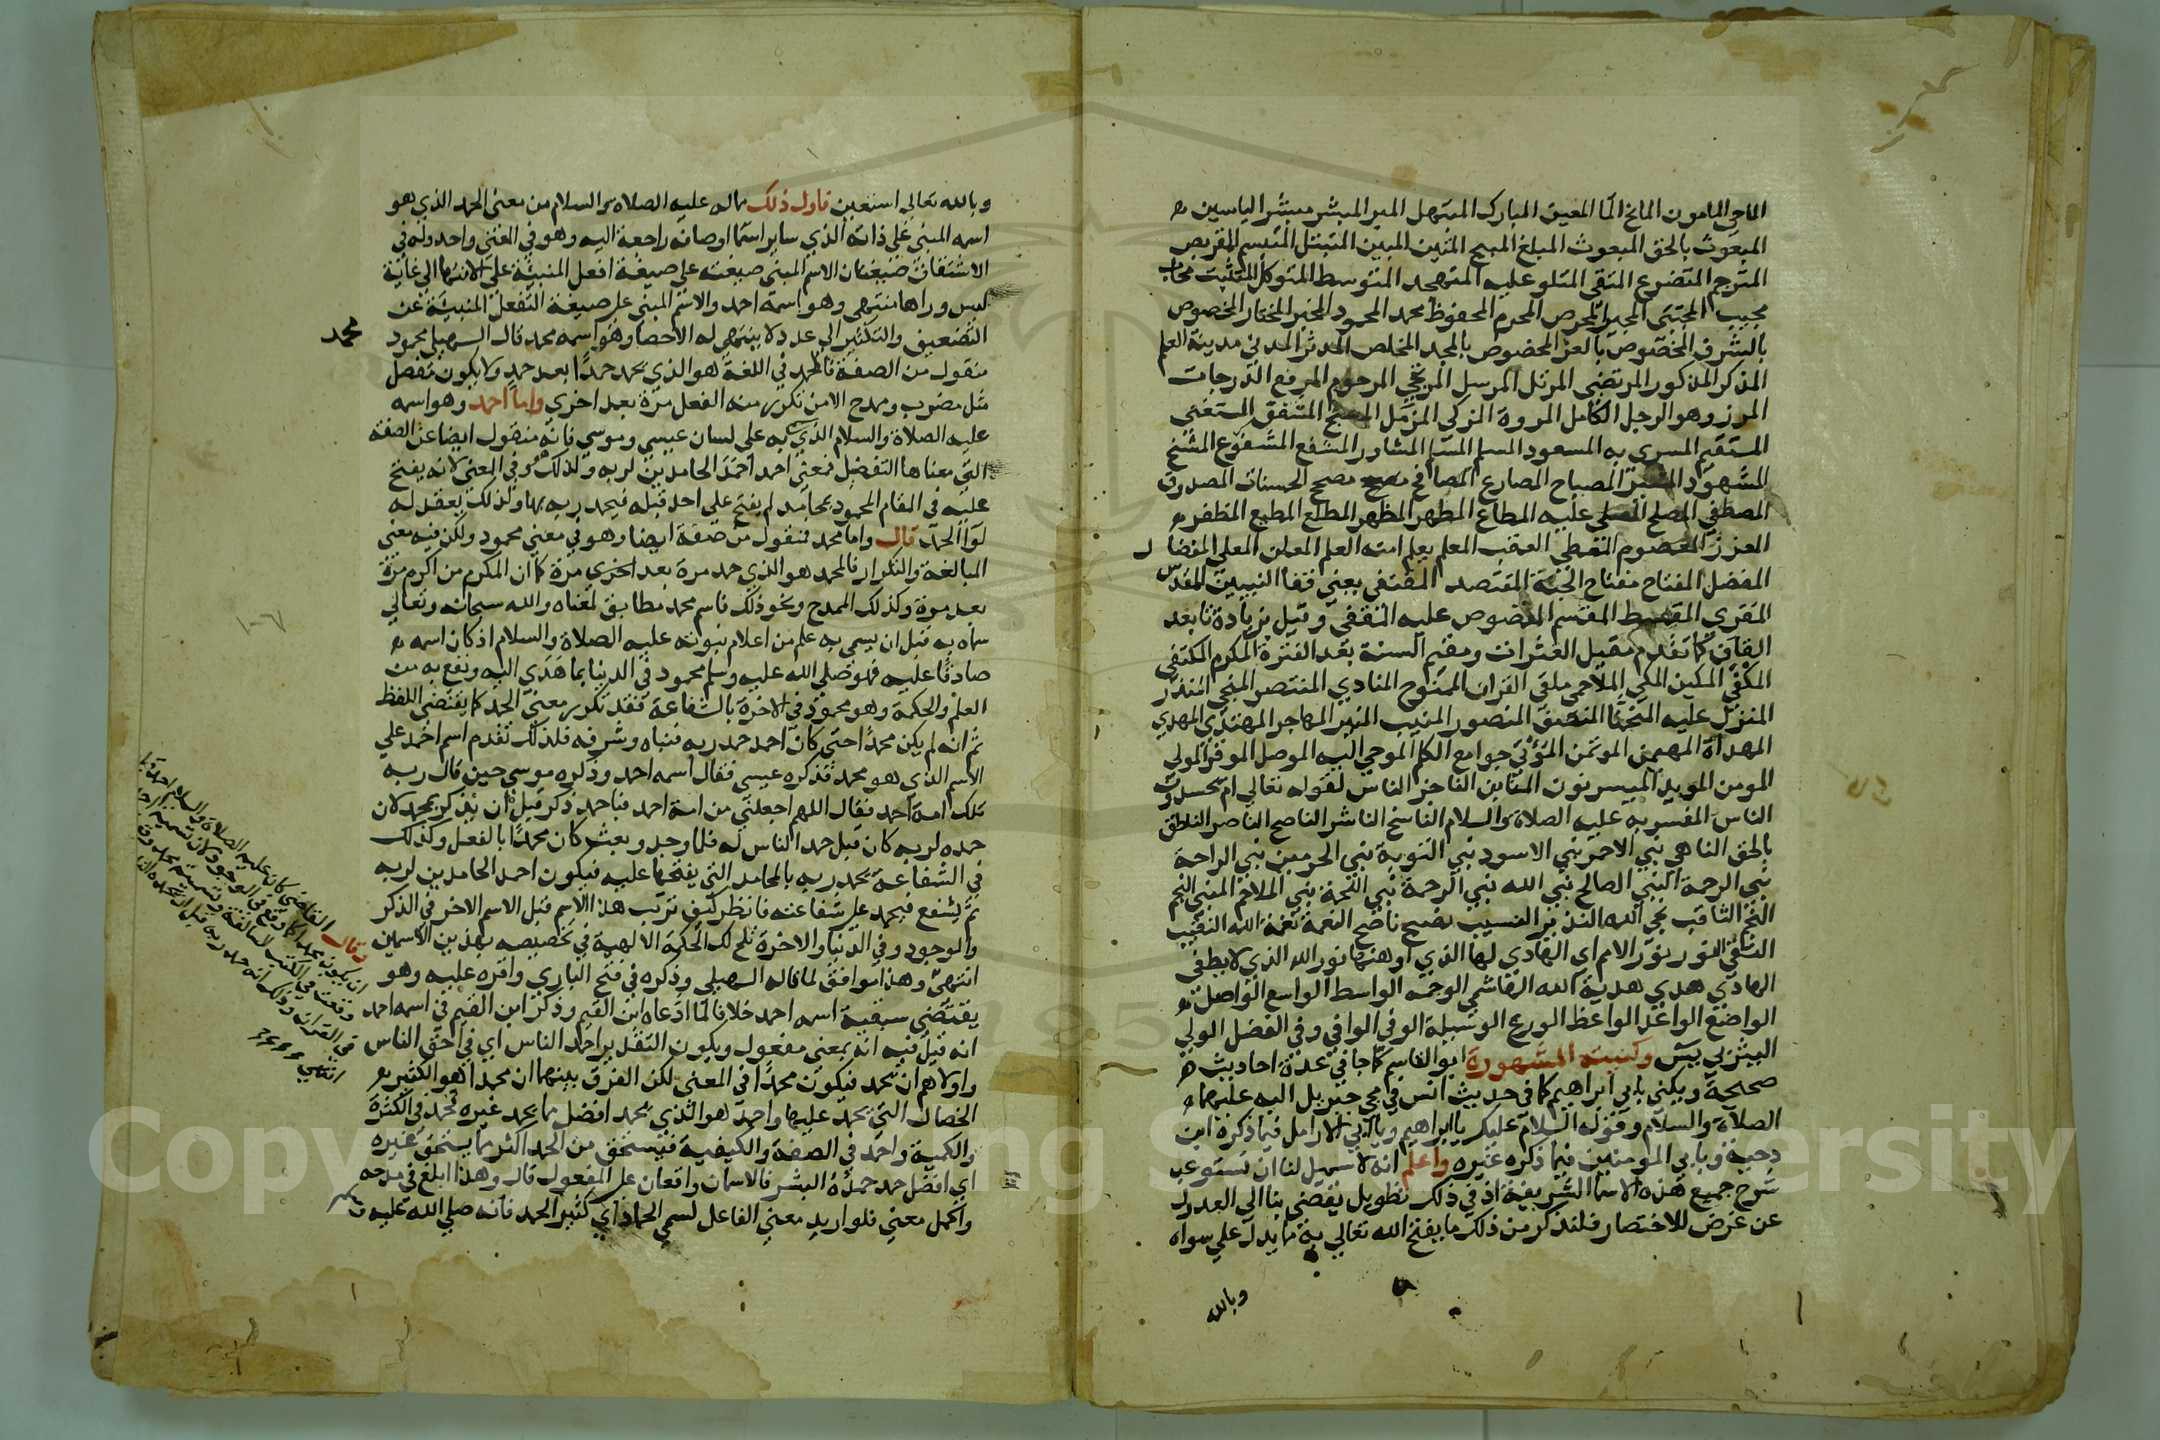 الماحي المامون المانح الما المعين المبارك المبتهل المبر المبشر مبشر الياسين
المبعوث بالحق المبعوث المبلغ المبيح المتين المبين المتبتل المتبسم المتربص
المترحم المتضرع المتقى المتلو عليه المتهجد المتوسط المتوكل المتثبت مجاب
مجيب المجتبى المجير المحرض المحرم المحفوظ محمد المحمود المخبر المختار المخصوص
بالشرف المخصوص بالعز المخصوص بالمجد المخلص المدثر المدني مدينة العلم
المذكر المذكور المرتضى المرتل المرسل المرتجي المرحوم المرفع الدرجات
المرز وهو الرجل الكامل المروة المزكي المزمل المسبح المستغفر المستغنى
المستقيم المسرى به المسعود المسلم المسلم المشاور المشفع المشفوع المشفح
المشهود المشير المصباح المصارع المصافح مصحح الحسنات المصدوق
المصطفى المصلح المصلى عليه المطاع المطهر المظهر المطلع المطيع المظفر
المعزز المعصوم المعطي المعقب المعلم معلم امته العلم المعلن المعلى المفضال
المفضل المفتاح مفتاح الجنة المقتصد المقتفى يعني قفا النبيين المقدس
المقري المقسط المقسم المقصوص عليه المقفى وقيل بزيادة تا بعد
القاف كما تقدم مقيل العثرات ومقيم السنة بعد الفترة المكرم المكتفى
المكفى المكين المكي الملاحمي ملقى القران الممنوح المنادي المنتصر المنجي المنذر
المنزل عليه المنحمنا المنصف المنصور المنيب المنير المهاجر المهتدي المهدي
المهداة المهيمن الموتمن المؤتي جوامع الكلم الموحي اليه الموصل الموقر المولى
المومن المويد الميسر نون النابذ الناجز الناس لقوله تعالي ام يحسدون
الناس المفسر به عليه الصلاة والسلام الناسخ الناشر الناصح الناصر الناطق
بالحق الناهي نبي الاحمر نبي الاسود نبي التوبة نبي الحرمين نبي الراحة
نبي الرحمة النبي الصالح نبي الله نبي المرحمة نبي الملحمة نبي الملاحم المنبي النجم
النجم الثاقب نجي الله النذير النسيب نصيح ناصح النعمة نعمة الله النقيب
النقي النور نور الامم اي الهادي لها الذي اوهبها نور الله الذي لا يطفى
الهادي هدي هدية الله الهاشمي الوجيه الواسط الواسع الواصل
الواضع الواعد الواعظ الورع الوسيلة الوفي الوافي وفي الفضل الولي
اليثربي يس وكنيته المشهورة ابو القاسم كما جا في عدة احاديث
صحيحة ويكنى بابي ابراهيم كما في حديث انس في مجي جبريل اليه عليهما
الصلاة والسلام وقوله السلام عليك يا ابراهيم وبابي الارامل فيما ذكره ابن
دحية وبابي المومنين فيما ذكره غيره واعلم انه لا سبيل لنا ان نستوعب
شرح جميع هذه الاسما الشريفة اذ في ذلك تطويل يفضي بنا الى العدول
عن غرض للاختصار فلنذكر من ذلك ما يفتح الله تعالي به مما يدل علي سواه
وبالله
وبالله تعالي استعين فاول ذلك ماله عليه الصلاة والسلام من معنى الحمد الذي هو
اسمه المبنى على ذاته الذي ساير اسما اوصافه راجعة اليه وهو في المعنى واحد وله في
الاشتقاق صيغتان الاسم المبني صيغته علي صيغة افعل المنبئة على الانتها الى غاية
ليس وراها منتهى وهو اسمه احمد والاسم المبني علي صيغة التفعيل المنبئة عن
التضعيف والتكثير الي عدد لا ينتهي له الاحصا وهو اسمه محمد قال السهيلي محمود
محمد
منقول من الصفة فالمحمد في اللغة هو الذي يحمد حمدًا بعد حمد ولا يكون مفعل
مثل مضرب وممدح الا من تكرر منه الفعل مرة بعد اخري واما احمد وهو اسمه
عليه الصلاة والسلام الذي سمي به على لسان عيسي وموسي فانه منقول ايضا عن الصفة
التي معناها التفضيل فمعنى احمد احمد الحامدين لربه وكذلك هو في المعنى لانه يفتح
عليه في المقام المحمود بمحامد لم يفتح علي احد قبله فيحمد ربه بها ولذلك يعقد له
لوا الحمد قال واما محمد فمنقول من صفة ايضا وهو في معنى محمود ولكن فيه معنى
المبالغة والتكرار فالمحمد هو الذي حمد مرة بعد اخري مرة كما ان المكرم من اكرم مرة
بعد مرة وكذلك الممدح ونحو ذلك فاسم محمد مطابق لمعناه والله سبحانه وتعالي
سماه به قبل ان يسمي به علم من اعلام نبوته عليه الصلاة والسلام اذ كان اسمه
صادقًا عليه فهو صلى الله عليه وسلم محمود في الدنيا بما هدي اليه ونفع به من
العلم والحكمة وهو محمود في الاخرة بالشفاعة فقد تكرر معنى الحمد كما يقتضى اللفظ
ثم انه لم يكن محمدًا حتى كان احمد حمد ربه فنباه وشرفه فلذلك تقدم اسم احمد علي
الاسم الذي هو محمد فذكره عيسي فقال اسمه احمد وذكره موسي حين قال ربه
تلك امة احمد فقال اللهم اجعلني من امة احمد فباحمد ذكر قبل ان يذكر بمحمد لان
حمده لربه كان قبل حمد الناس له فلما وجد وبعث كان محمدًا بالفعل وكذلك
في الشفاعة يحمد ربه بالمحامد التي يفتحها عليه فيكون احمد الحامدين لربه
ثم يشفع فيحمد علي شفاعته فانظر كيف ترتب هذا الاسم قبل الاسم الاخر في الذكر
والوجود وفي الدنيا والاخرة تلح لك الحكمة الالهية في تخصيصه بهذين الاسمين
انتهى وهذا موافق لما قاله السهيلي وذكره في فتح الباري واقره عليه وهو
يقتضي سبقية اسمه احمد خلافا لما ادعاه ابن القيم وذكر ابن القيم في اسمه احمد
انه قيل فيه انه بمعنى مفعول ويكون التقدير احمد الناس اي في احق الناس
واولاهم ان يحمد فيكون محمدًا في المعنى لكن الفرق بينهما ان محمدا هو الكثير
الخصال التي يحمد عليها واحمد هو الذي يحمد افضل مما يحمد غيره فمحمد في الكثرة
والكمية واحمد في الصفة والكيفية فيستحق من الحمد اكثر مما يستحق غيره
اي افضل حمد حمده البشر فالاسمان واقعان علي المفعول قال وهذا ابلغ في مدحه
واكمل معنى فلو اريد معنى الفاعل لسمي الحماد اي كثير الحمد فانه صلي الله عليه وسلم
وقال القاضي كان عليه الصلاة والسلام احمد قبل
ان يكون محمدا كما وقع في الوجود لان تسميته احمد
وقعت في الكتب السالفة وتسميته محمد وقعت
في القران وذلك انه حمد ربه قبل ان يحمده الناس
انتهى